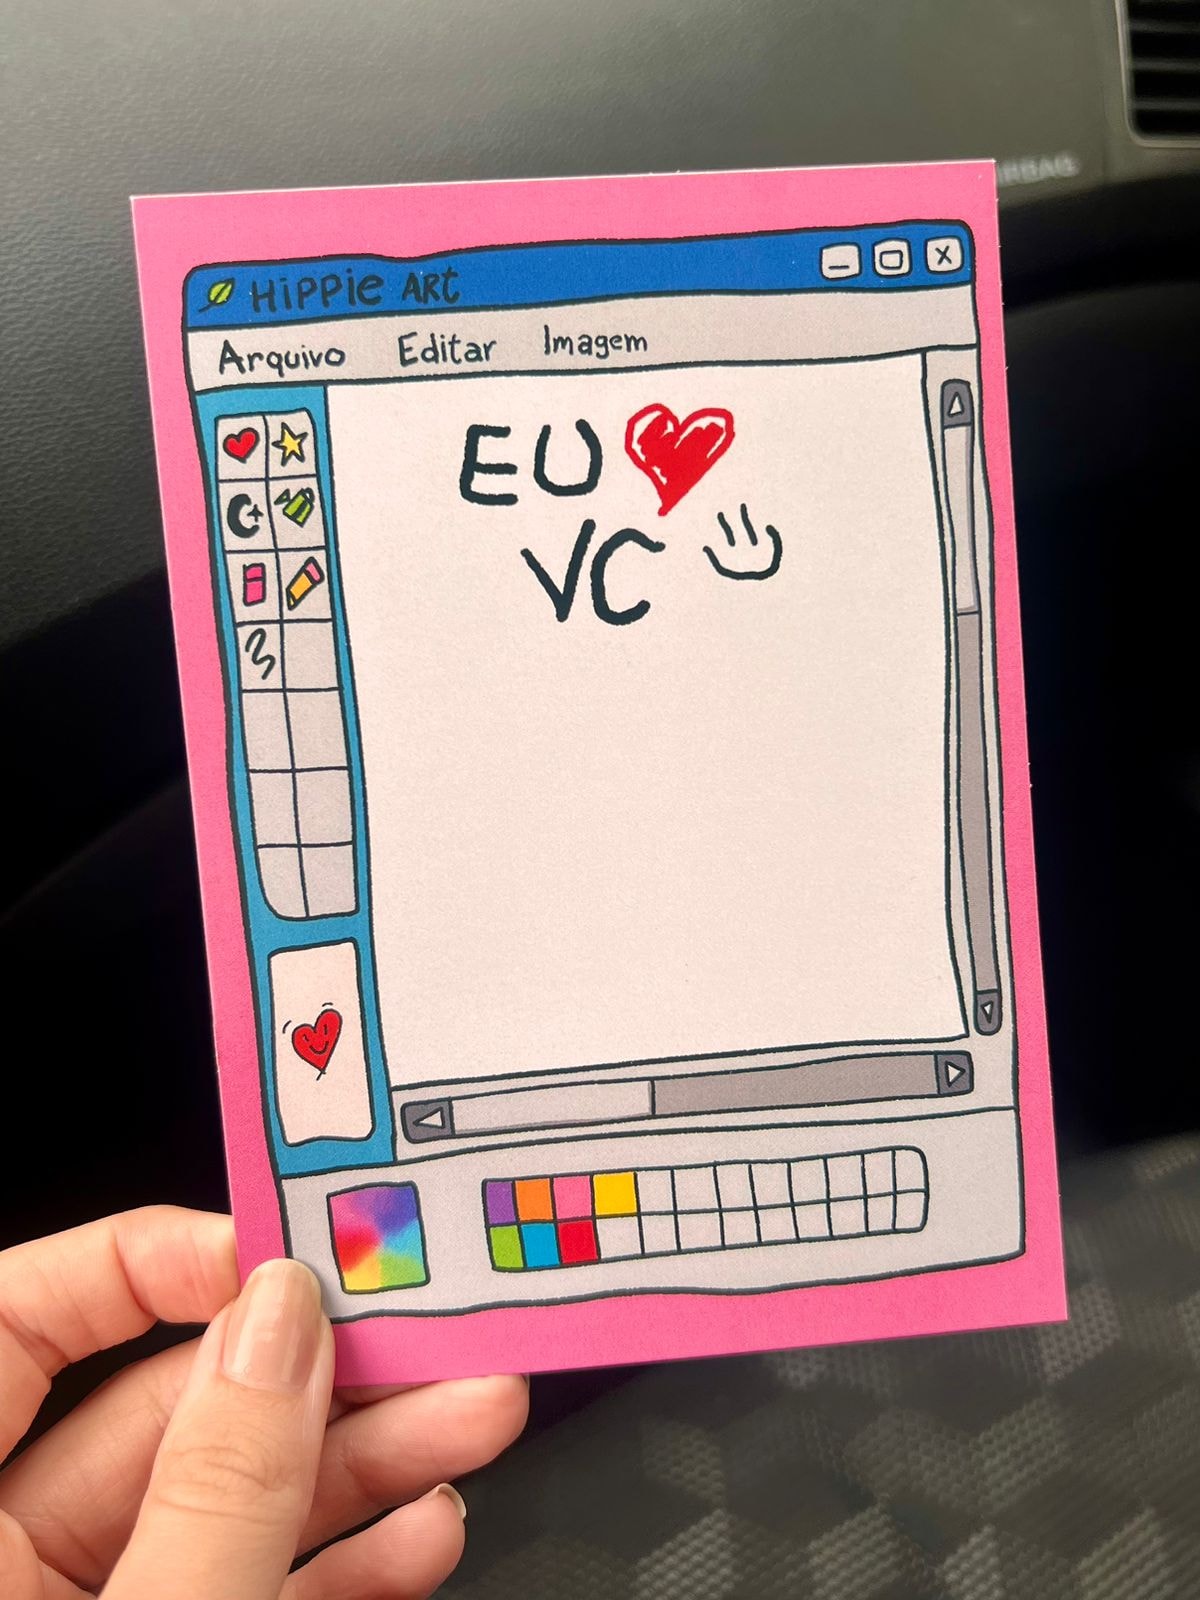 Hippie ART
Arquivo Editar Imagem
EU ❤
VC